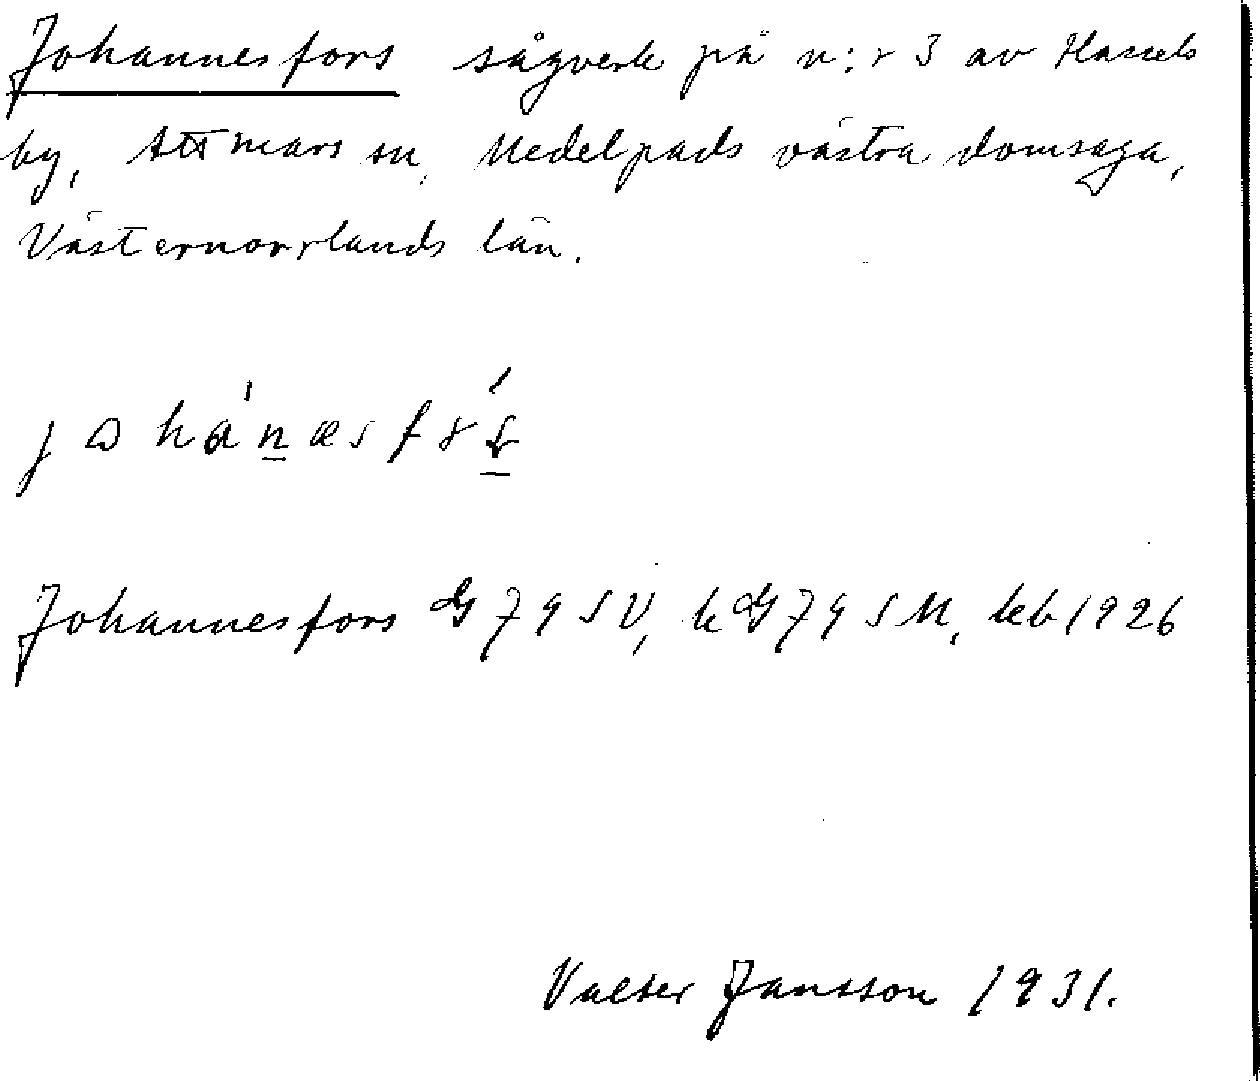 Johannesfors sågverk på n:r 3 av Hassels
by, Attmars sn, Medelpads västra domsaga,
Västernorrlands län.
Johannesfors G 79 SV, k G 79 SM, leb 1926
Valter Jansson 1931.